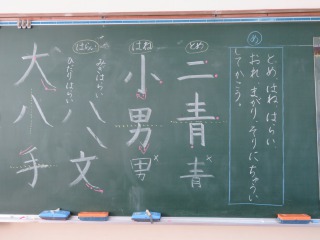 め
とめ はね はらい
おれ まがり、そりにちゅうい
してかこう。
とめ
二青
青
はね
小男
男
はらい
みぎはらい
ひだりはらい
八八文
大八手